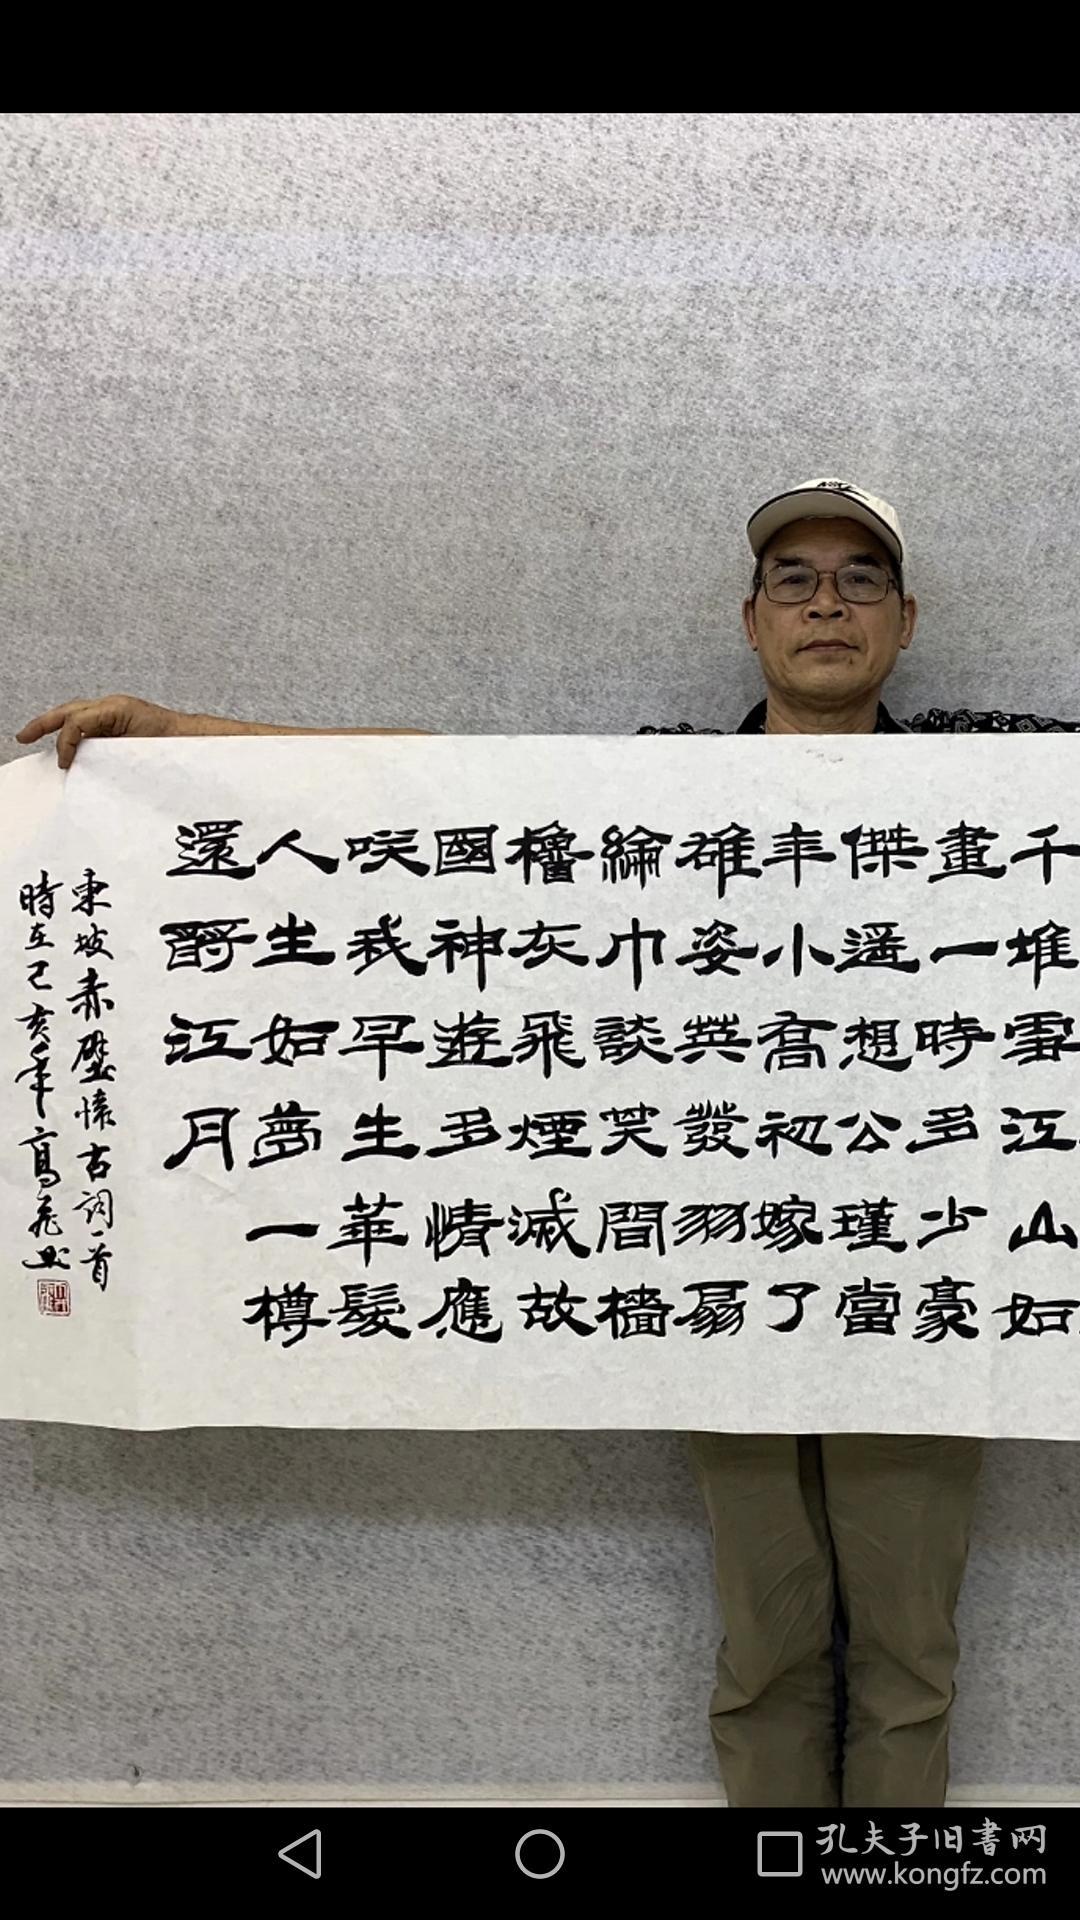 千堆雪江山如
畫一時多少豪
傑遥想公瑾當
年小喬初嫁了
雄姿英發羽扇
綸巾談笑間檣
櫓灰飛煙滅故
國神遊多情應
咲我早生華髮
人生如夢一樽
還酹江月
東坡赤壁懷古詞一首
時在己亥年高飛书
孔夫子旧書网
www.kongfz.com